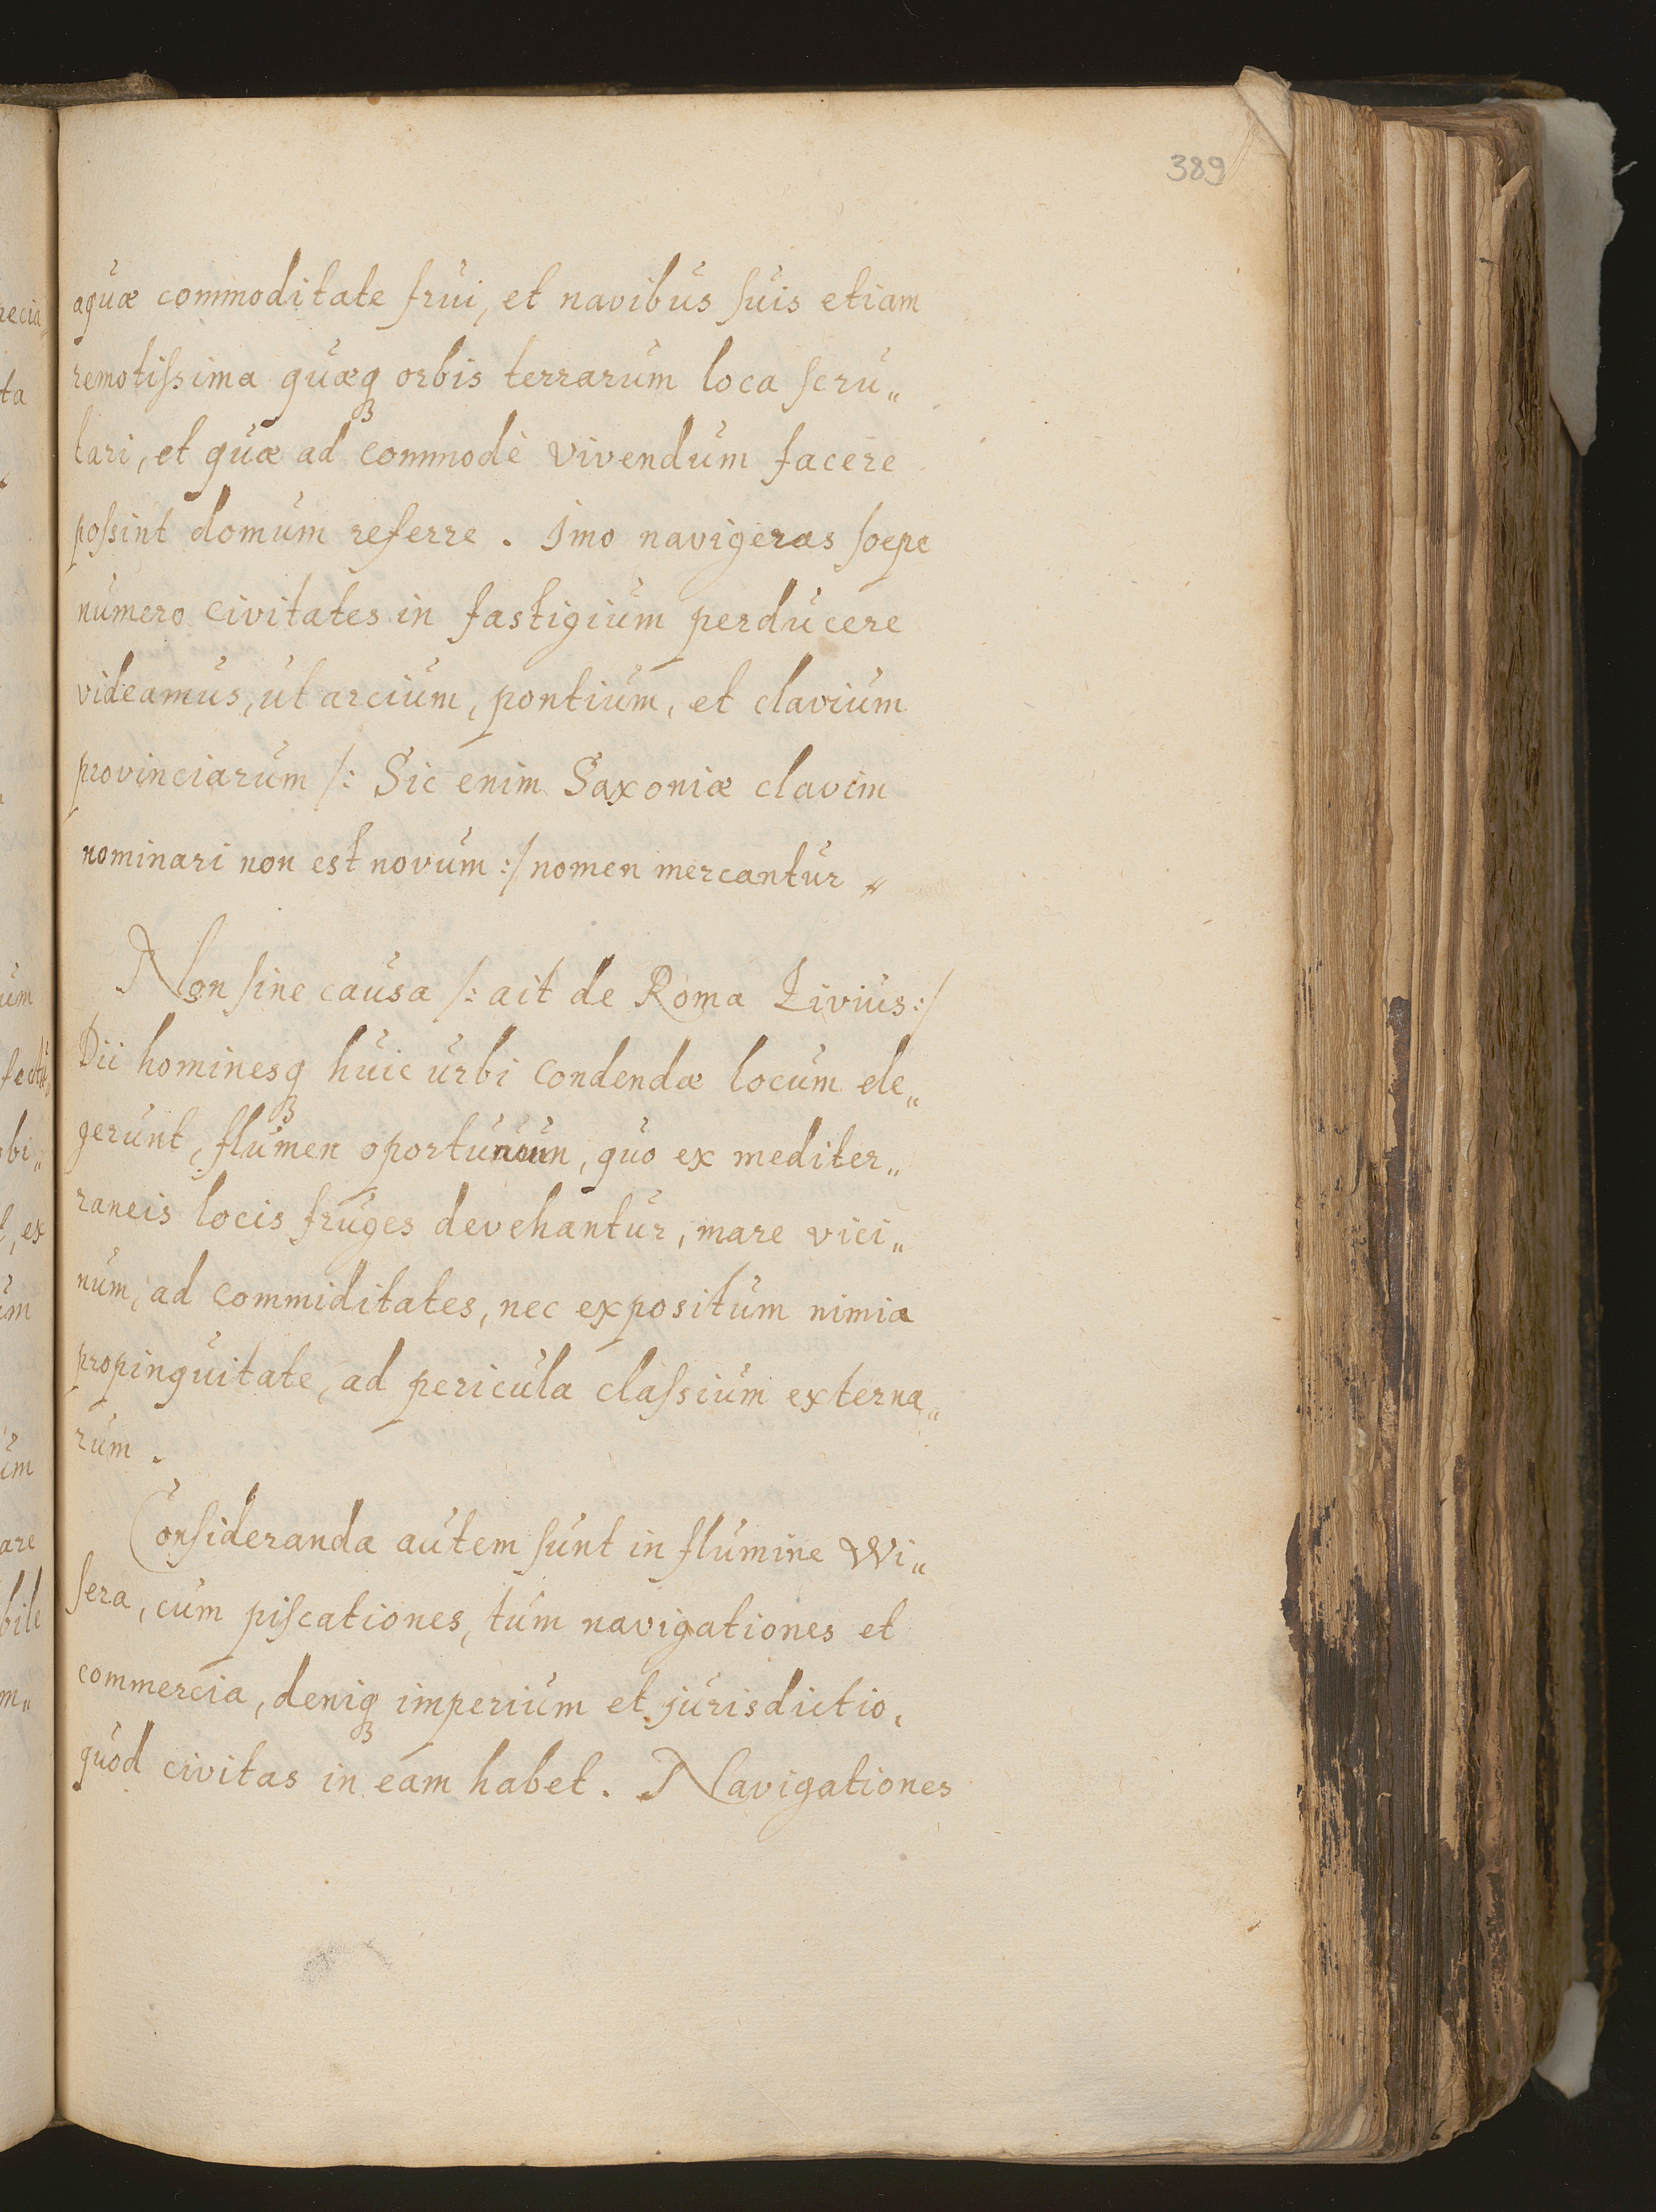 389
aquæ commoditate frui, et navibus suis etiam
remotissima quæqꝫ orbis terrarum loca scru„
tari, et quæ ad commodè vivendum facere
possint domum referre. Imo navigeras sœpe
numero civitates in fastigium perducere
videamus, ut arcium, pontium, et clavium
provinciarum /: Sic enim Saxoniæ clavim
nominari non est novum :/ nomen mercantur„
Non sine causa /: ait de Roma Livius :/
Dii hominesqꝫ huic urbi condendæ locum ele„
gerunt, flumen oportunum, quo ex mediter„
raneis locis fruges devehantur, mare vici„
num, ad commiditates, nec expositum nimia
propinquitate, ad pericula classium externa„
rum.
Consideranda autem sunt in flumine Wi„
sera, cum piscationes, tum navigationes et
commercia, deniqꝫ imperium et jurisdictio,
quod civitas in eam habet. Navigationes